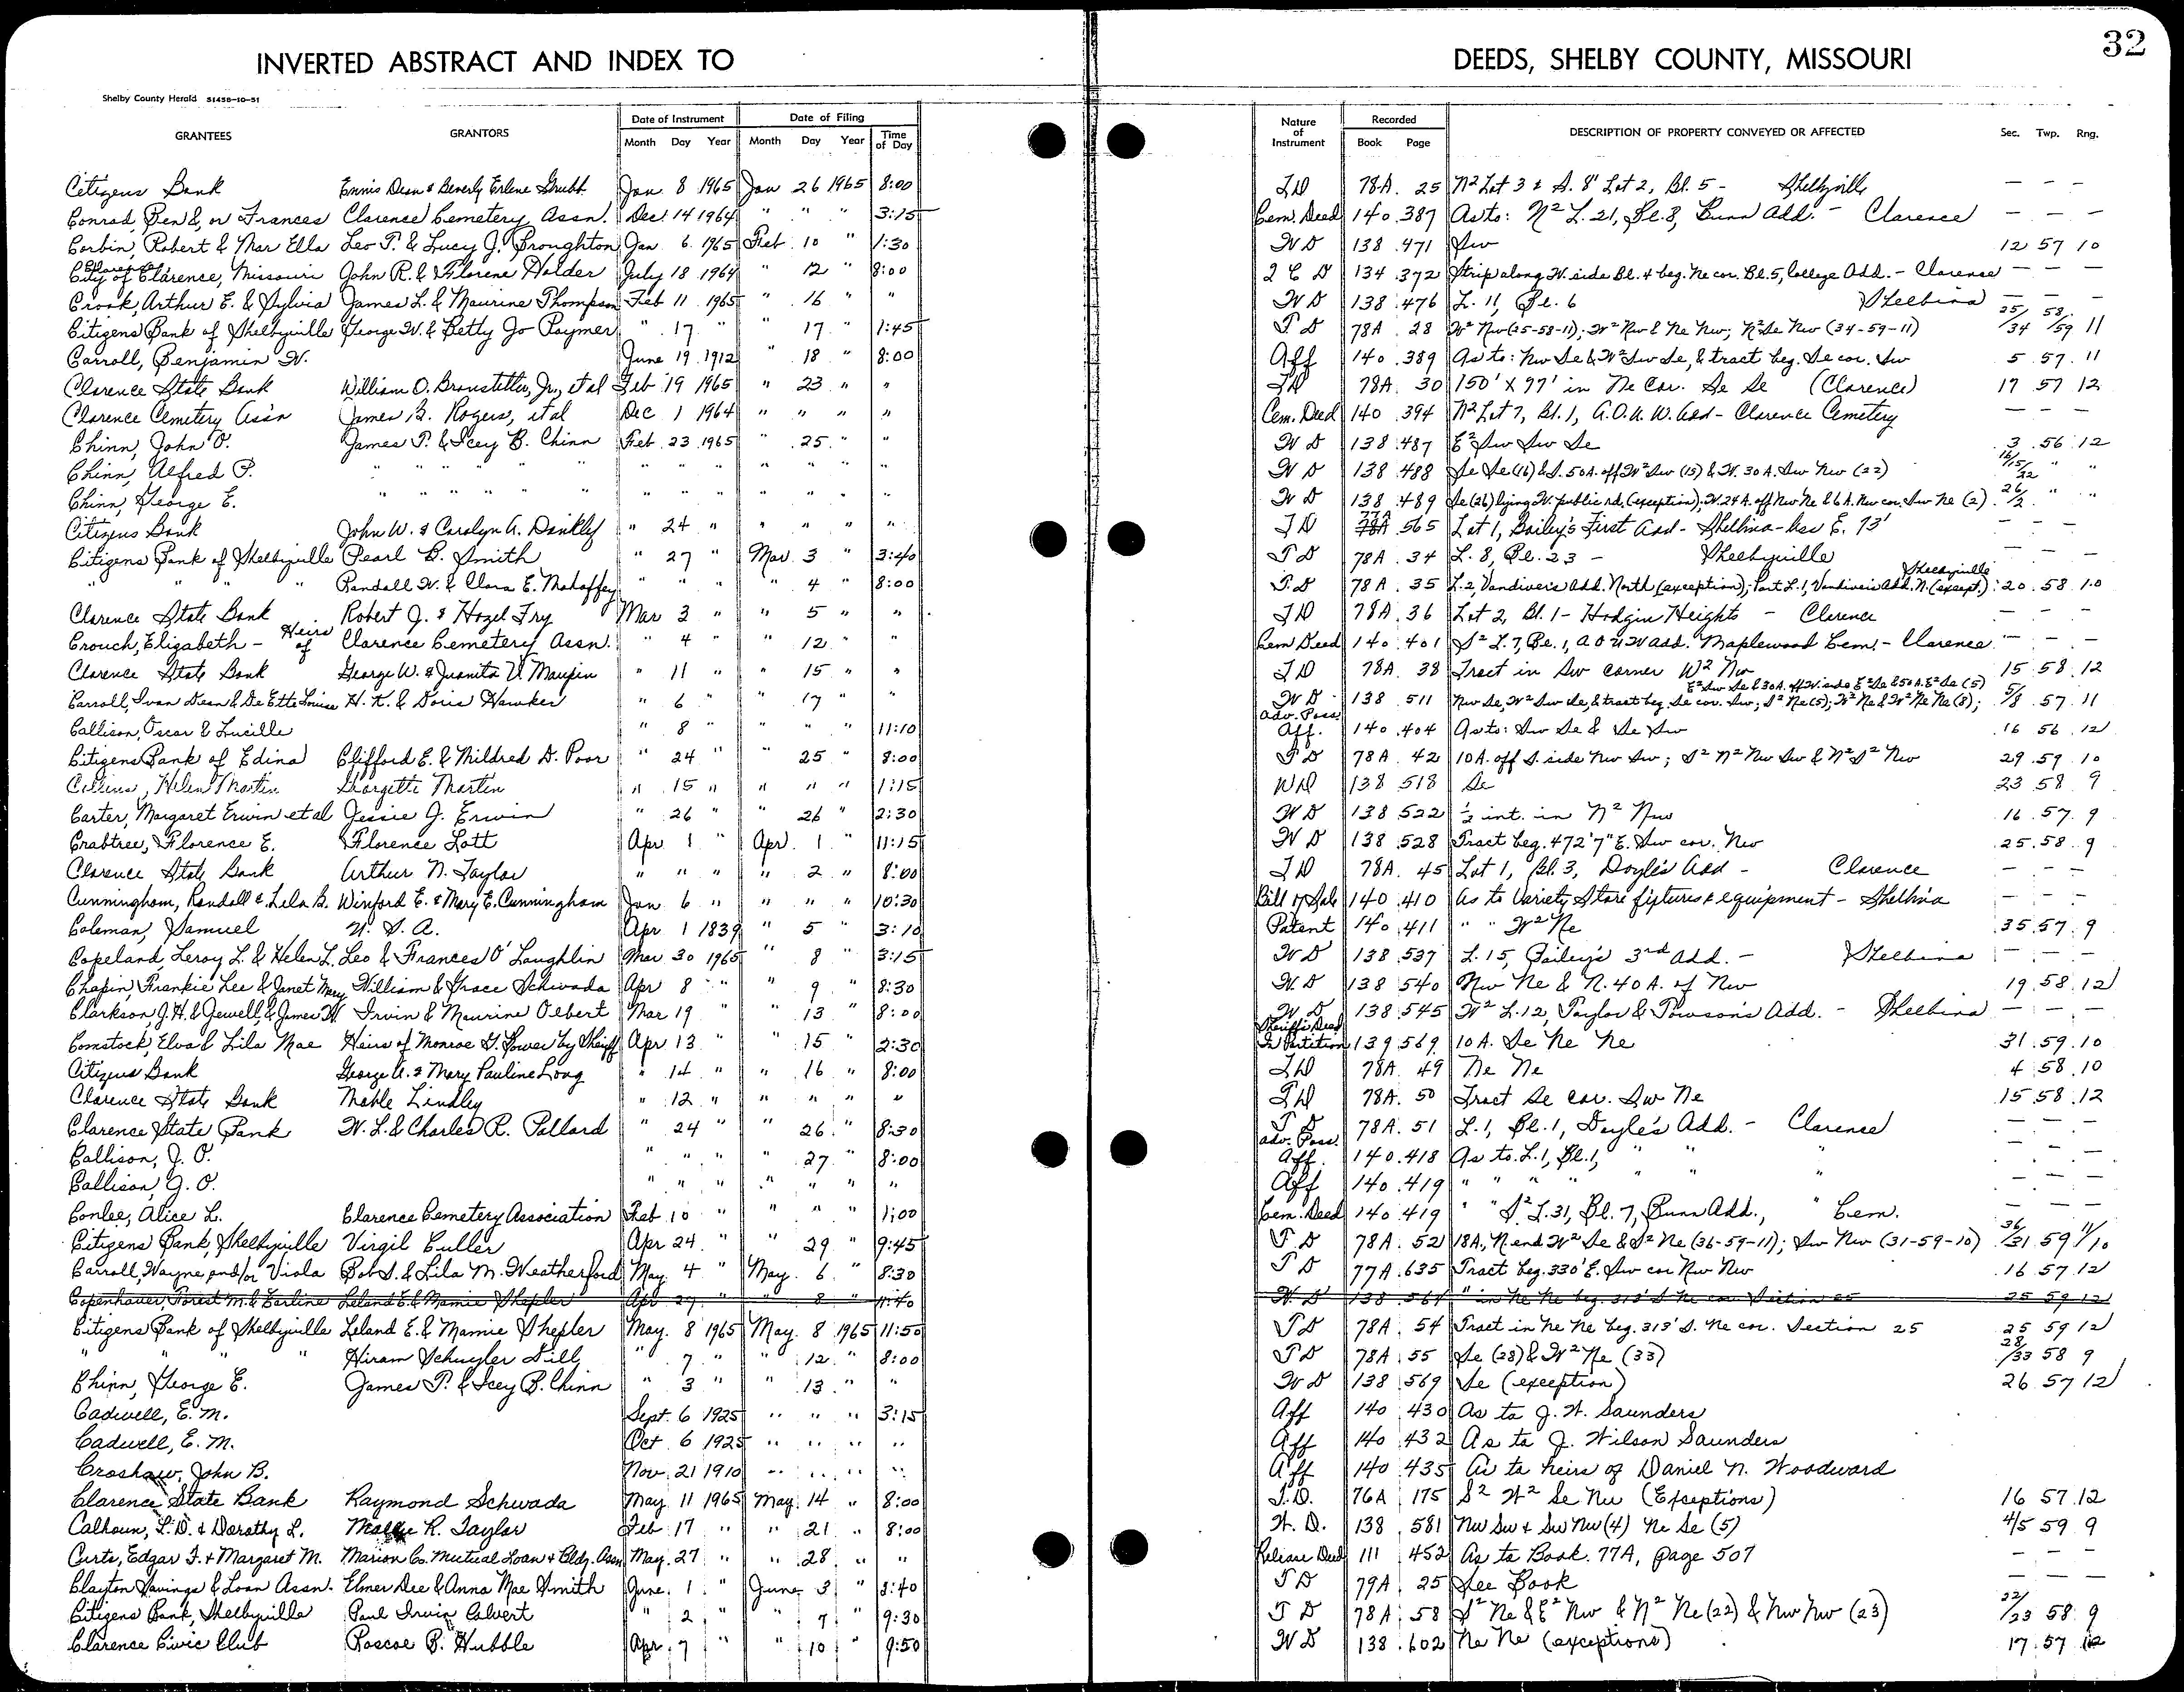 32
INVERTED ABSTRACT AND INDEX TO DEEDS, SHELBY COUNTY, MISSOURI
Shelby County Herald 51458-10-51
GRANTEES GRANTORS Date of Instrument Month Day Year Date of Filing Month Day Year Time of Day Nature of Instrument Recorded Book Page DESCRIPTION OF PROPERTY CONVEYED OR AFFECTED Sec. Twp. Rng.
Citizens Bank Ennis Dean & Beverly Erlene Grubb Jan 8 1965 Jan 26 1965 8:00 T D 78A 25 N² Lot 3 & S. 8' Lot 2, Bl. 5 - Shelbyville — — —
Conrad, Ben &, or Frances Clarence Cemetery Assn. Dec. 14 1964 " " " 3:15 Cem. Deed 140 387 As to: N² L. 21, Bl. 8, Bunn Add. - Clarence — — —
Corbin, Robert & Mar Ella Leo P. & Lucy J. Broughton Jan 6 1965 Feb 10 " 1:30 W D 138 471 Sw 12 57 10
City of Clarence, Missouri John R. & Florene Holder July 18 1964 " 12 " 8:00 Q C D 134 372 Strip along W. side Bl. 4 beg. Ne cor. Bl. 5, College Add. - Clarence — — —
Crook, Arthur E. & Sylvia James L. & Maurine Thompson Feb 11 1965 " 16 " " W D 138 476 L. 11, Bl. 6 Shelbina — — —
Citizens Bank of Shelbyville George W. & Betty Jo Paymer " 17 " " 17 " 1:45 T D 78A 28 W² Nw (25-58-11); W² Nw & Ne Nw; N² Se Nw (34-59-11) 25/34 58/59 11
Carroll, Benjamin W. June 19 1912 " 18 " 8:00 Aff 140 389 As to: Nw Se & W² Sw Se, & tract beg. Se cor. Sw 5 57 11
Clarence State Bank William O. Bronstetter, Jr., et al Feb 19 1965 " 23 " " T D 78A 30 150' X 97' in Ne Cor. Se Se (Clarence) 17 57 12
Clarence Cemetery Ass'n James B. Rogers, et al Dec 1 1964 " " " " Cem. Deed 140 394 N² Lot 7, Bl. 1, A.O.U.W. Add - Clarence Cemetery — — —
Chinn, John O. James P. & Icey B. Chinn Feb 23 1965 " 25 " " W D 138 487 E² Sw Sw Se 3 56 12
Chinn, Alfred P. " " " " " " " " " " " W D 138 488 Se Se (16) & S. 50 A. off W² Sw (15) & W. 30 A. Sw Nw (22) 16/15/22 " "
Chinn, George E. " " " " " " " " " " " W D 138 489 Se (26) lying W. public rd. (exception); W. 24 A. off Nw Ne & 6 A. Nw cor. Sw Ne (2) 26/2 " "
Citizens Bank John W. & Carolyn A. Dinkley " 24 " " " " " T D 77A 565 Lot 1, Bailey's First Add - Shelbina - less E. 73' — — —
Citizens Bank of Shelbyville Pearl B. Smith " 27 " Mar. 3 " 3:40 T D 78A 34 L. 8, Bl. 23 - Shelbyville — — —
" " " " Randall W. & Clara E. Mahaffey " " " " 4 " 8:00 T. D 78A 35 L. 2, Vandiver's Add. North (exception); Part L. 1, Vandiver's Add. N. (except.) Shelbyville 20 58 10
Clarence State Bank Robert J. & Hazel Fry Mar 3 " " 5 " " T D 78A 36 Lot 2, Bl. 1 - Hodgin Heights - Clarence — — —
Crouch, Elizabeth - Heirs of Clarence Cemetery Assn. " 4 " " 12 " " Cem Deed 140 401 S² L. 7, Bl. 1, A O U W Add. Maplewood Cem. - Clarence — — —
Clarence State Bank George W. & Juanita V. Maupin " 11 " " 15 " " T D 78A 38 Tract in Sw corner W² Nw 15 58 12
Carroll, Ivan Dean & De Ette Louise H. K. & Doris Hawker " 6 " " 17 " " W D 138 511 Nw Se, W² Sw Se, & tract beg. Se cor. Sw; S² Ne (5); W² Ne & W² Ne Ne (8); E² Sw Se & 30 A. off W. side E² Se & 50 A. E² Se (5) 5/8 57 11
Callison, Oscar & Lucille " 8 " " " " 11:10 Adv. Poss. Aff. 140 404 As to: Sw Se & Se Sw 16 56 12
Citizens Bank of Edina Clifford E. & Mildred D. Poor " 24 " " 25 " 8:00 T D 78A 42 10 A. off S. side Nw Sw; S² N² Nw Sw & N² S² Nw 29 59 10
Collins, Helen Martin Georgette Martin " 15 " " " " 1:15 WD 138 518 Se 23 58 9
Carter, Margaret Erwin et al Jessie J. Erwin " 26 " " 26 " 2:30 W D 138 522 ½ int. in N² Nw 16 57 9
Crabtree, Florence E. Florence Lott Apr 1 " Apr. 1 " 11:15 W D 138 528 Tract beg. 472'7" E. Sw cor. Nw 25 58 9
Clarence State Bank Arthur N. Taylor " " " " 2 " 8:00 T D 78A 45 Lot 1, Bl. 3, Doyle's Add - Clarence — — —
Cunningham, Randall & Lela B. Winford E. & Mary E. Cunningham Jan 6 " " " " 10:30 Bill of Sale 140 410 As to Variety Store fixtures & equipment - Shelbina — — —
Coleman, Samuel U. S. A. Apr 1 1839 " 5 " 3:10 Patent 140 411 " " W² Ne 35 57 9
Copeland, Leroy L. & Helen L. Leo & Frances O'Laughlin Mar 30 1965 " 8 " 3:15 W D 138 537 L. 15, Bailey's 3rd Add. - Shelbina — — —
Chapin, Frankie Lee & Janet Mary William & Grace Schwada Apr 8 " " 9 " 8:30 W. D 138 540 Nw Ne & N. 40 A. of Nw 19 58 12
Clarkson, J. H. & Jewell, & James W. Irvin & Maurine Oebert Mar 19 " " 13 " 8:00 W D 138 545 W² L. 12, Taylor & Towson's Add. - Shelbina — — —
Comstock, Elva & Lila Mae Heirs of Monroe G. Power by Sheriff Apr 13 " " 15 " 2:30 Sheriff's Deed In Partition 139 569 10 A. Se Ne Ne 31 59 10
Citizens Bank George A. & Mary Pauline Long " 14 " " 16 " 8:00 T D 78A 49 Ne Ne 4 58 10
Clarence State Bank Mable Lindley " 12 " " " " " T D 78A 50 Tract Se cor. Sw Ne 15 58 12
Clarence State Bank W. L. & Charles R. Pollard " 24 " " 26 " 8:30 T D 78A 51 L. 1, Bl. 1, Doyle's Add. - Clarence — — —
Callison, J. O. " " " " 27 " 8:00 Adv. Poss. Aff. 140 418 As to. L. 1, Bl. 1, " " " — — —
Callison, J. O. " " " " " " " Aff 140 419 " " " " " " " — — —
Conlee, Alice L. Clarence Cemetery Association Feb 10 " " " " 1:00 Cem. Deed 140 419 " " S² L. 31, Bl. 7, Bunn Add., " Cem. — — —
Citizens Bank, Shelbyville Virgil Culler Apr 24 " " 29 " 9:45 T D 78A 52 18 A., N. end W² Se & S² Ne (36-59-11); Sw Nw (31-59-10) 36/31 59 11/10
Carroll, Wayne, and/or Viola Bob S. & Lila M. Weatherford May 4 " May 6 " 8:30 T D 77A 635 Tract beg. 330' E. Sw cor Nw Nw 16 57 12
Copenhauer, Forest M. & Earline Leland E. & Mamie Shepler Apr 27 " " 8 " 11:40 W. D 138 564 " in Ne Ne beg. 313' S. Ne cor. Section 25 25 59 12
Citizens Bank of Shelbyville Leland E. & Mamie Shepler May. 8 1965 May. 8 1965 11:50 T D 78A 54 Tract in Ne Ne beg. 313' S. Ne cor. Section 25 25 59 12
" " " " Hiram Schuyler Dill " 7 " " 12 " 8:00 T D 78A 55 Se (28) & W² Ne (33) 28/33 58 9
Chinn, George E. James P. & Icey B. Chinn " 3 " " 13 " " W D 138 569 Se (exception) 26 57 12
Cadwell, E. M. Sept. 6 1925 " " " 3:15 Aff 140 430 As to J. W. Saunders
Cadwell, E. M. Oct 6 1925 " " " " Aff 140 432 As to J. Wilson Saunders
Croshaw, John B. Nov. 21 1910 " " " " Aff 140 435 As to heirs of Daniel N. Woodward
Clarence State Bank Raymond Schwada May 11 1965 May 14 " 8:00 T. D. 76A 175 S² W² Se Nw (Exceptions) 16 57 12
Calhoun, L. D. & Dorothy L. R. Taylor Feb 17 " " 21 " 8:00 W. D. 138 581 Nw Sw & Sw Nw (4) Ne Se (5) 4/5 59 9
Curts, Edgar F. & Margaret M. Marion Co. Mutual Loan & Bldg. Assn May. 27 " " 28 " " Release Deed 111 452 As to Book. 77A, page 507 — — —
Clayton Savings & Loan Assn. Elmer Dee & Anna Mae Smith June 1 " June 3 " 8:40 T D 79A 25 See Book — — —
Citizens Bank, Shelbyville Paul Irvin Calvert " 2 " " 7 " 9:30 T D 78A 58 S² Ne & E² Nw & N² Ne (22) & Nw Nw (23) 22/23 58 9
Clarence Civic Club Roscoe B. Hubble Apr 7 " " 10 " 9:50 W D 138 602 Ne Ne (exceptions) 17 57 12